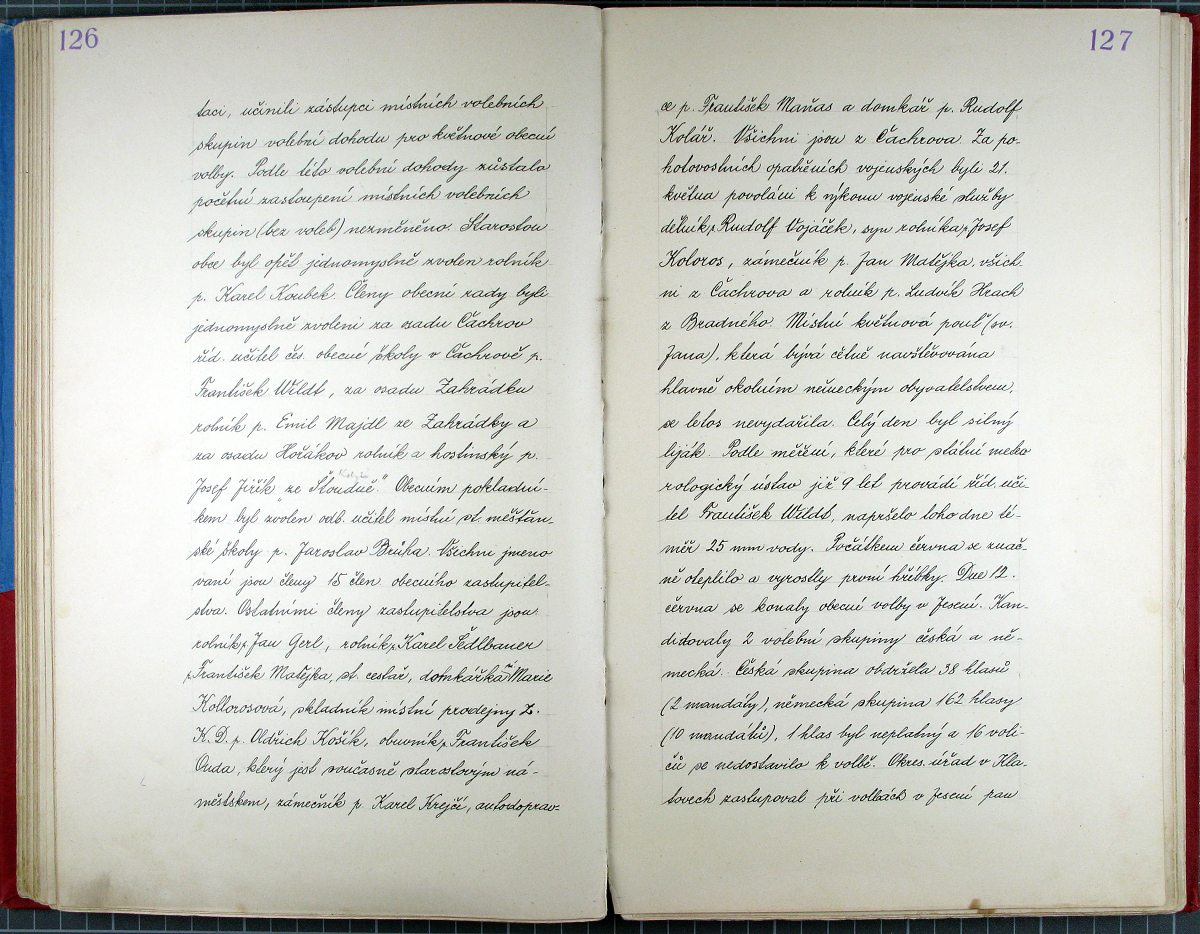 126
taci, učinili zástupci místních volebních
skupin volební dohodu pro květnové obecní
volby. Podle této volební dohody zůstalo
početní zastoupení místních volebních
skupin (bez voleb) nezměněno. Starostou
obce byl opět jednomyslně zvolen rolník
p. Karel Koubek. Členy obecní rady byli
jednomyslně zvoleni za osadu Čachrov
říd. učitel čes. obecné školy v Čachrově p.
František Wildt, za osadu Zahrádku
rolník p. Emil Majdl ze Zahrádky a
za osadu Hořákov rolník a hostinský p.
Josef Jiřík ze "Stoudně." Obecním pokladní-
kem byl zvolen odb. učitel místní st. měšťan-
ské školy p. Jaroslav Brůha. Všichni jmeno
vaní jsou členy 15 člen. obecního zastupitel-
stva. Ostatními členy zastupitelstva jsou:
rolník p. Jan Gerl, rolník p. Karel Sedlbauer
p. František Matějka, st. cestář, domkářka Marie
Kollorosová, skladník místní prodejny Z.
K. D. p. Oldřich Košík, obuvník p. František
Ouda, který jest současně starostovým ná-
městkem, zámečník p. Karel Krejčí, autodoprav-
127
ce p. František Maňas a domkář p. Rudolf
Kolář. Všichni jsou z Čachrova. Za po-
hotovostních opatřeních vojenských byli 21.
května povoláni k výkonu vojenské služby
dělník p. Rudolf Vojáček, syn rolníka p. Josef
Koloros, zámečník p. Jan Matějka, všich-
ni z Čachrova a rolník p. Ludvík Hrach
z Bradného. Místní květnová pouť (sv.
Jana), která bývá četně navštěvována
hlavně okolním německým obyvatelstvem,
se letos nevydařila. Celý den byl silný
liják. Podle měření, které pro státní meteo
rologický ústav již 9 let provádí říd. uči-
tel František Wildt, napršelo toho dne té-
měř 25 mm vody. Počátkem června se znač-
ně oteplilo a vyrostly první hříbky. Dne 12.
června se konaly obecní volby v Jesení. Kan-
didovaly 2 volební skupiny česká a ně-
mecká. Česká skupina obdržela 38 hlasů
(2 mandáty), německá skupina 162 hlasy
(10 mandátů), 1 hlas byl neplatný a 16 voli-
čů se nedostavilo k volbě. Okres. úřad v Kla-
tovech zastupoval při volbách v Jesení pan